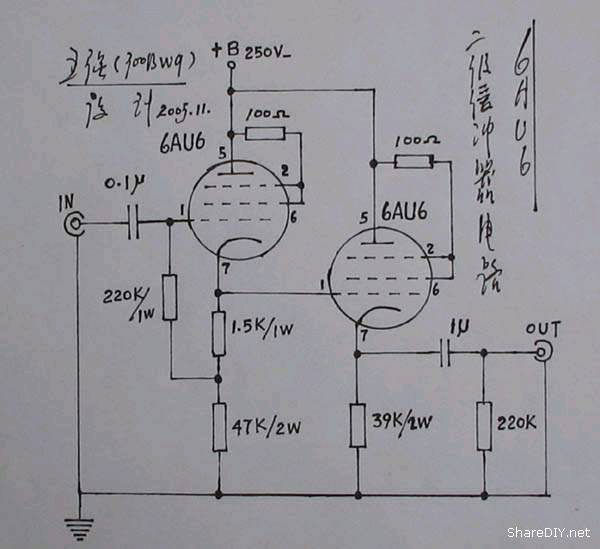 +B 250V-
王强(300Bwq)
设计 2005.11.
6AU6
二级缓冲器电路
100Ω
6AU6
100Ω
5
2
6
1
7
0.1μ
IN
6AU6
5
2
6
1
7
220K/1W
1.5K/1W
1μ
OUT
47K/2W
39K/2W
220K
ShareDIY.net